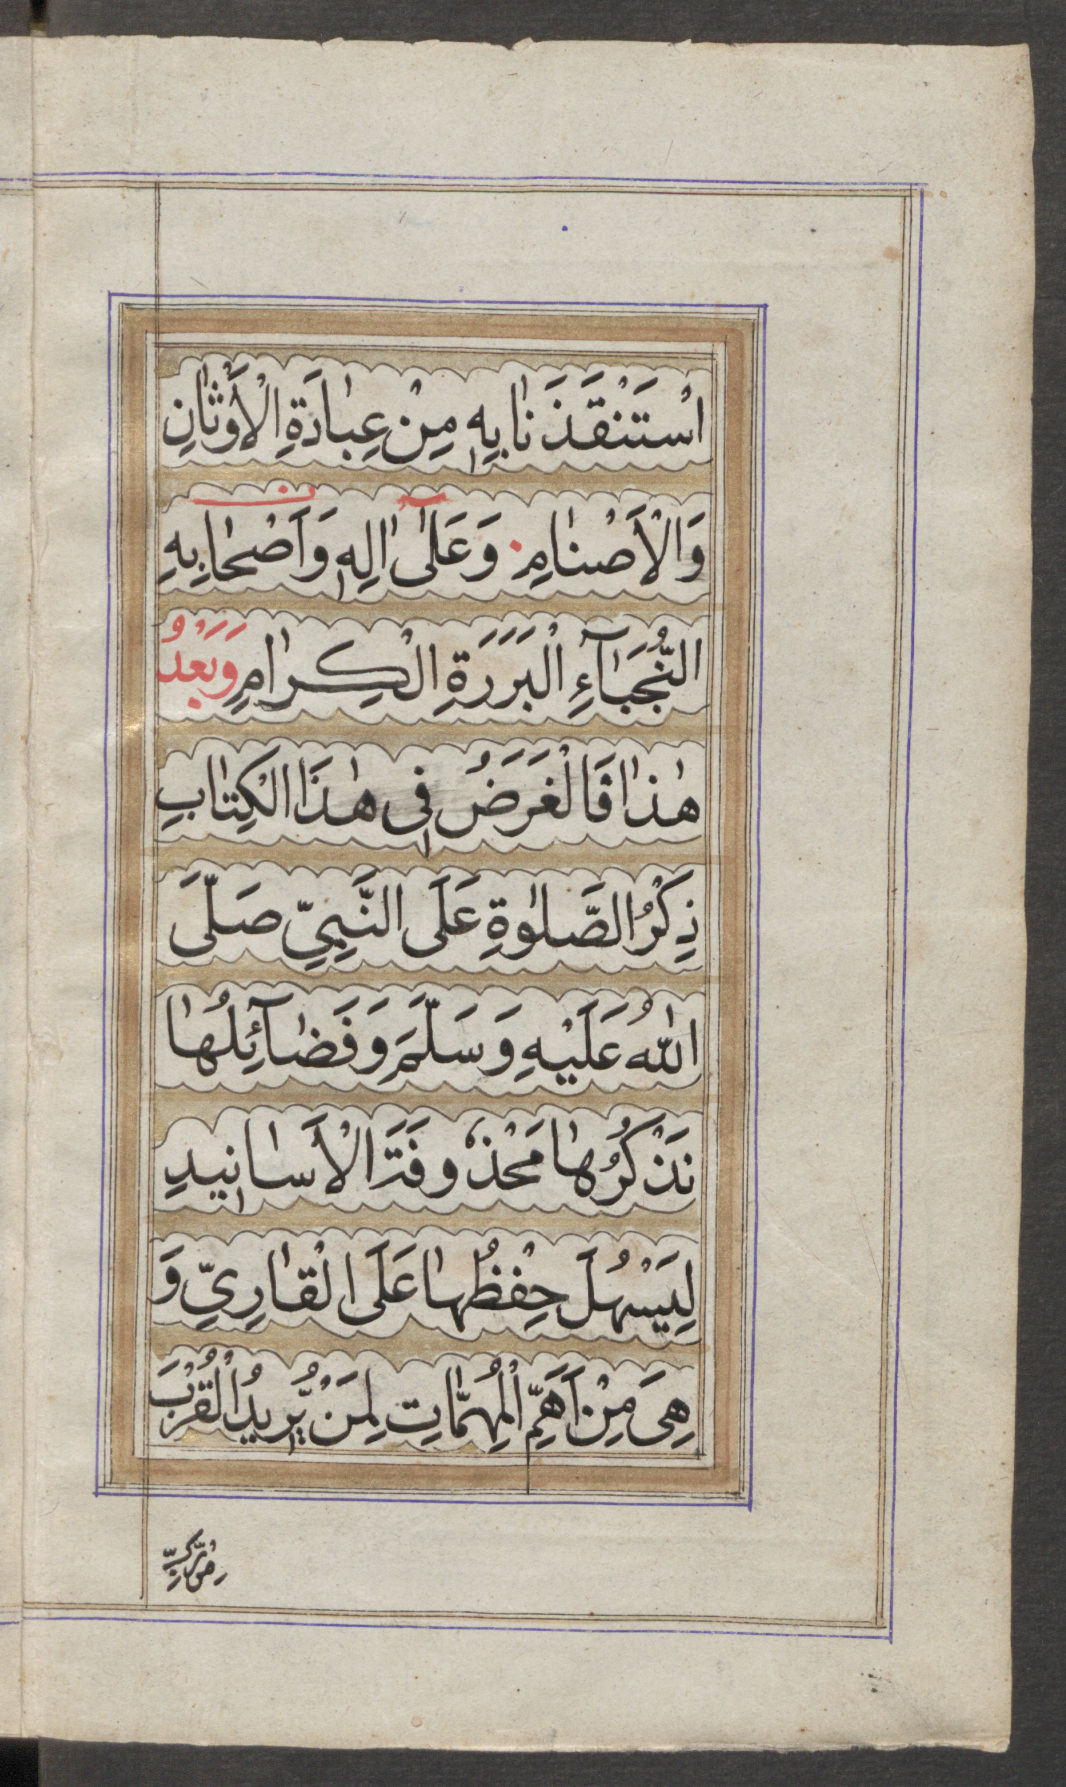 اسْتَنْقَذَنٰا بِهٖ مِنْ عِبٰادَةِ الْاَوْثٰانِ
وَالْاَصْنٰامِ وَعَلٰٓى اٰلِهٖ وَاَصْحٰابِهِ
النُّجَبٰٓاءِ الْبَرَرَةِ الْكِرٰامِ وَبَعْدُ
هٰذٰا فَالْغَرَضُ فِى هٰذَا الْكِتٰابِ
ذِكْرُ الصَّلٰوةِ عَلَى النَّبِيِّ صَلَّى
اللّٰهُ عَلَيْهِ وَسَلَّمَ وَفَضٰٓائِلُهٰا
نَذْكُرُهٰا مَحْذُوفَةَ الْاَسٰانِيدِ
لِيَسْهُلَ حِفْظُهٰا عَلَى الْقٰارِيِّ وَ
هِىَ مِنْ اَهَمِّ الْمُهِمّٰاتِ لِمَنْ يُّرِيدُ الْقُرْبَ